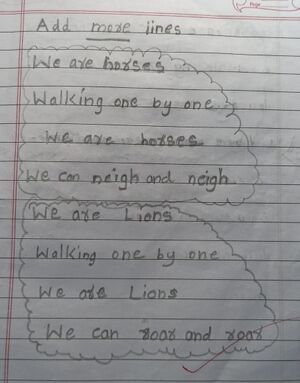 Page
Add more lines
We are horses
Walking one by one
We are horses
We can neigh and neigh
We are Lions
Walking one by one
We are Lions
We can roar and roar